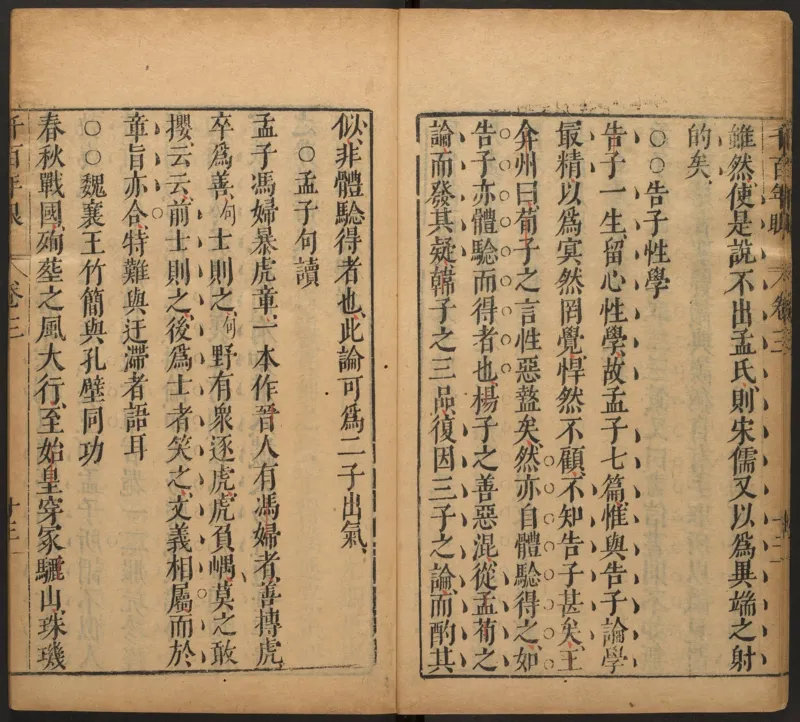 千百年眼 卷三
雖然使是說不出孟氏則宋儒又以爲異端之射
的矣
○○告子性學
告子一生留心性學故孟子七篇惟與告子論學
最精以爲冥然罔覺悍然不顧不知告子甚矣王
弇州曰荀子之言性惡盭矣然亦自體驗得之如
告子亦體驗而得者也楊子之善惡混從孟荀之
論而發其疑韓子之三品復因三子之論而酌其
似非體驗得者也此論可爲二子出氣
○孟子句讀
孟子馮婦暴虎章一本作晉人有馮婦者善摶虎
卒爲善句士則之句野有衆逐虎虎負嵎莫之敢
攖云云前士則之後爲士者笑之文義相屬而於
章旨亦合特難與迂滯者語耳
○○魏襄王竹簡與孔壁同功
春秋戰國殉塟之風大行至始皇穿冢驪山珠璣
千百年眼 卷三 十三